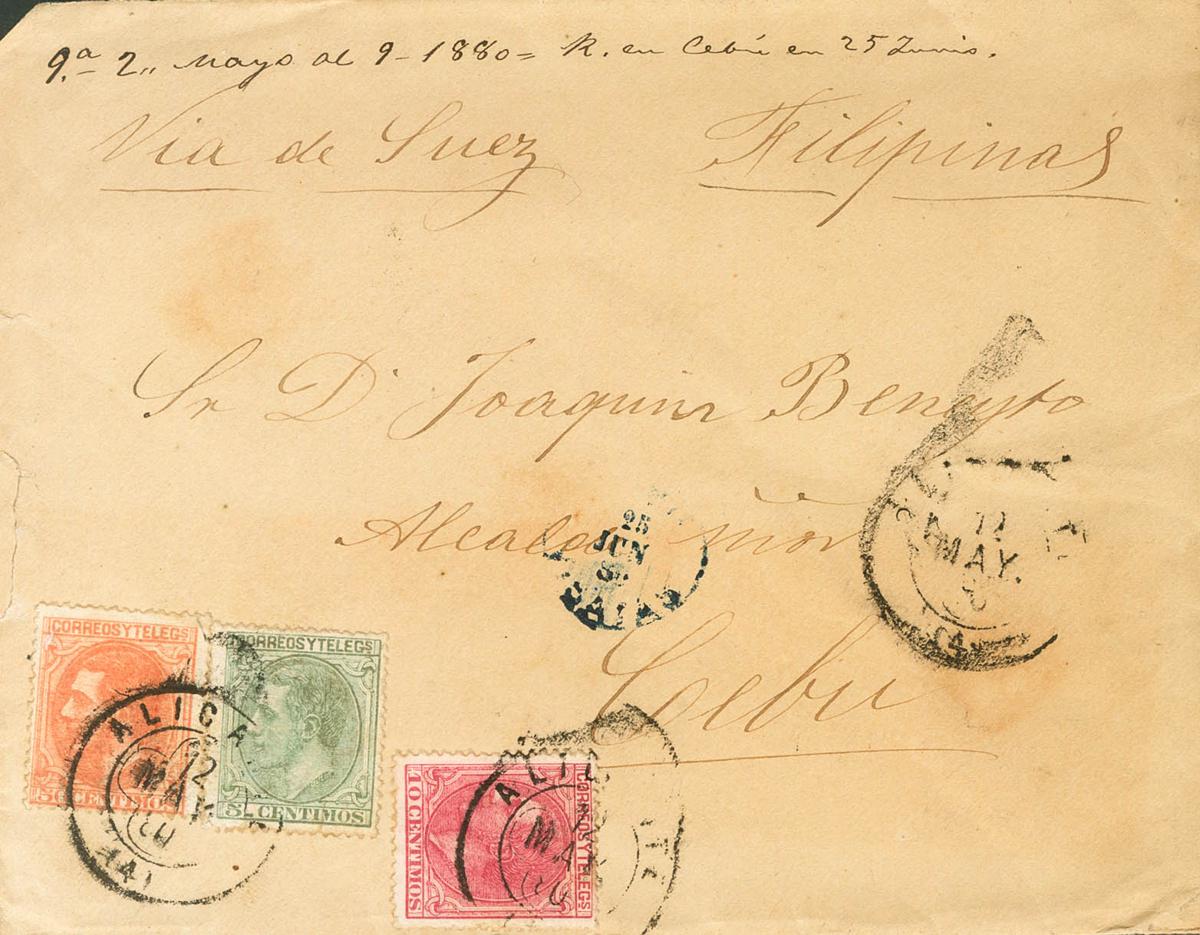 9.ª 2,, Mayo al 9-1880= R. en Cebú en 25 Junio.
Via de Suez Filipinas
Sr D. Joaquin Beneyto
Alcalde mor
Cebu
25
JUN
12
MAY.
(4)
CORREOS Y TELEGS
CENTIMOS
CORREOS Y TELEGS
5 CENTIMOS
ALICA
12
MAY
80
(4)
CORREOS Y TELEGS
10 CENTIMOS
ALIC
12
MAY
80